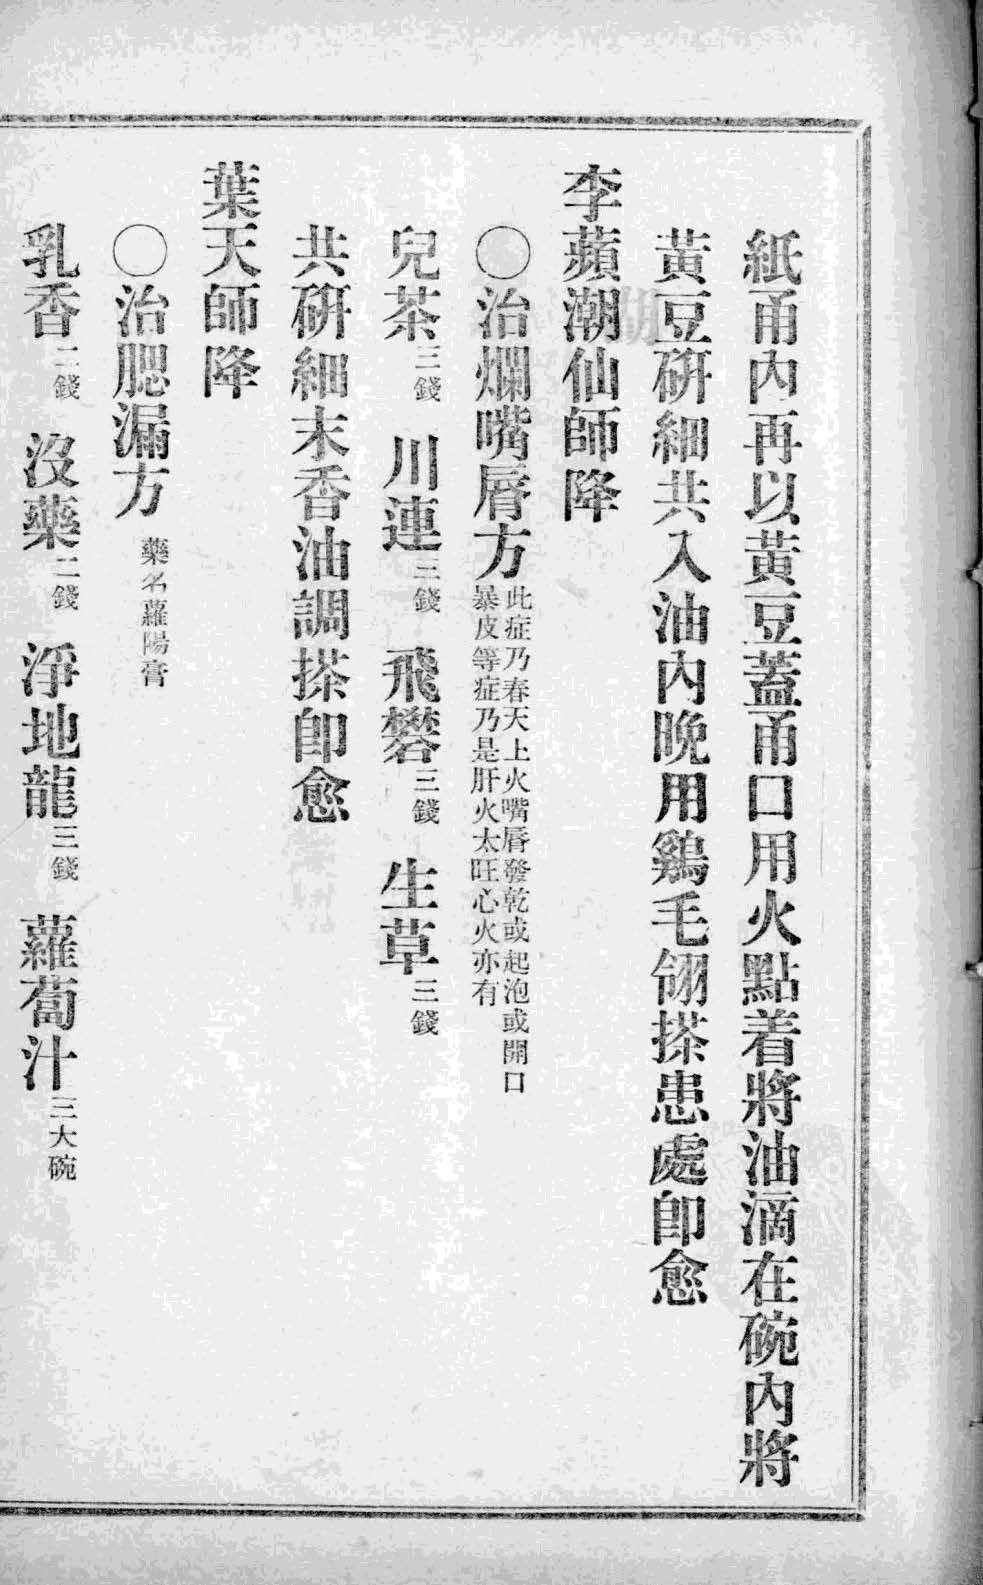 紙甬內再以黃豆蓋甬口用火點着將油滴在碗內將
黃豆硏細共入油內晚用鷄毛翎搽患處卽愈
李蘋潮仙師降
〇治爛嘴唇方此症乃春天上火嘴唇發乾或起泡或開口
暴皮等症乃是肝火太旺心火亦有
兒茶三錢 川連三錢 飛礬三錢 生草三錢
共硏細末香油調搽卽愈
葉天師降
〇治腮漏方 藥名蘿陽膏
乳香二錢 沒藥二錢 淨地龍三錢 蘿蔔汁三大碗